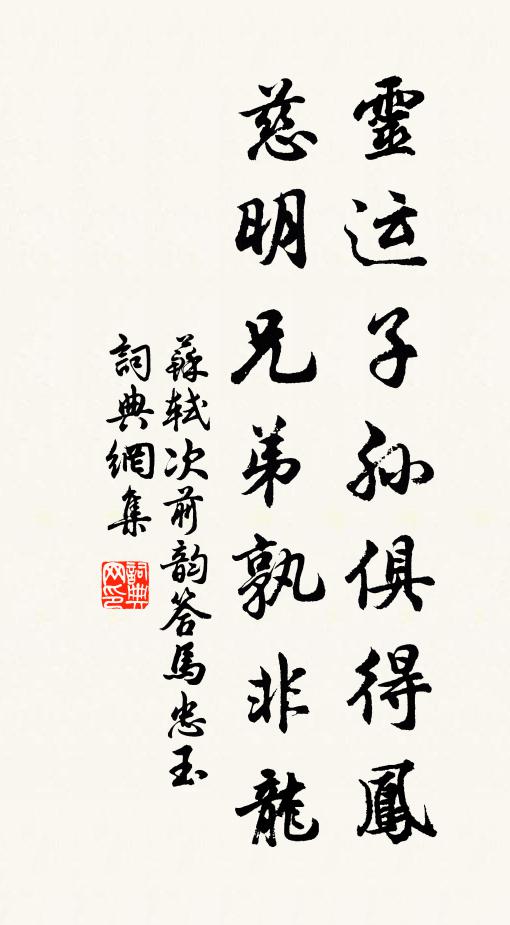 靈运子孫俱得鳳
慈明兄弟孰非龍
蘇軾次前韵答馬忠玉
詞典網集
詞典网印